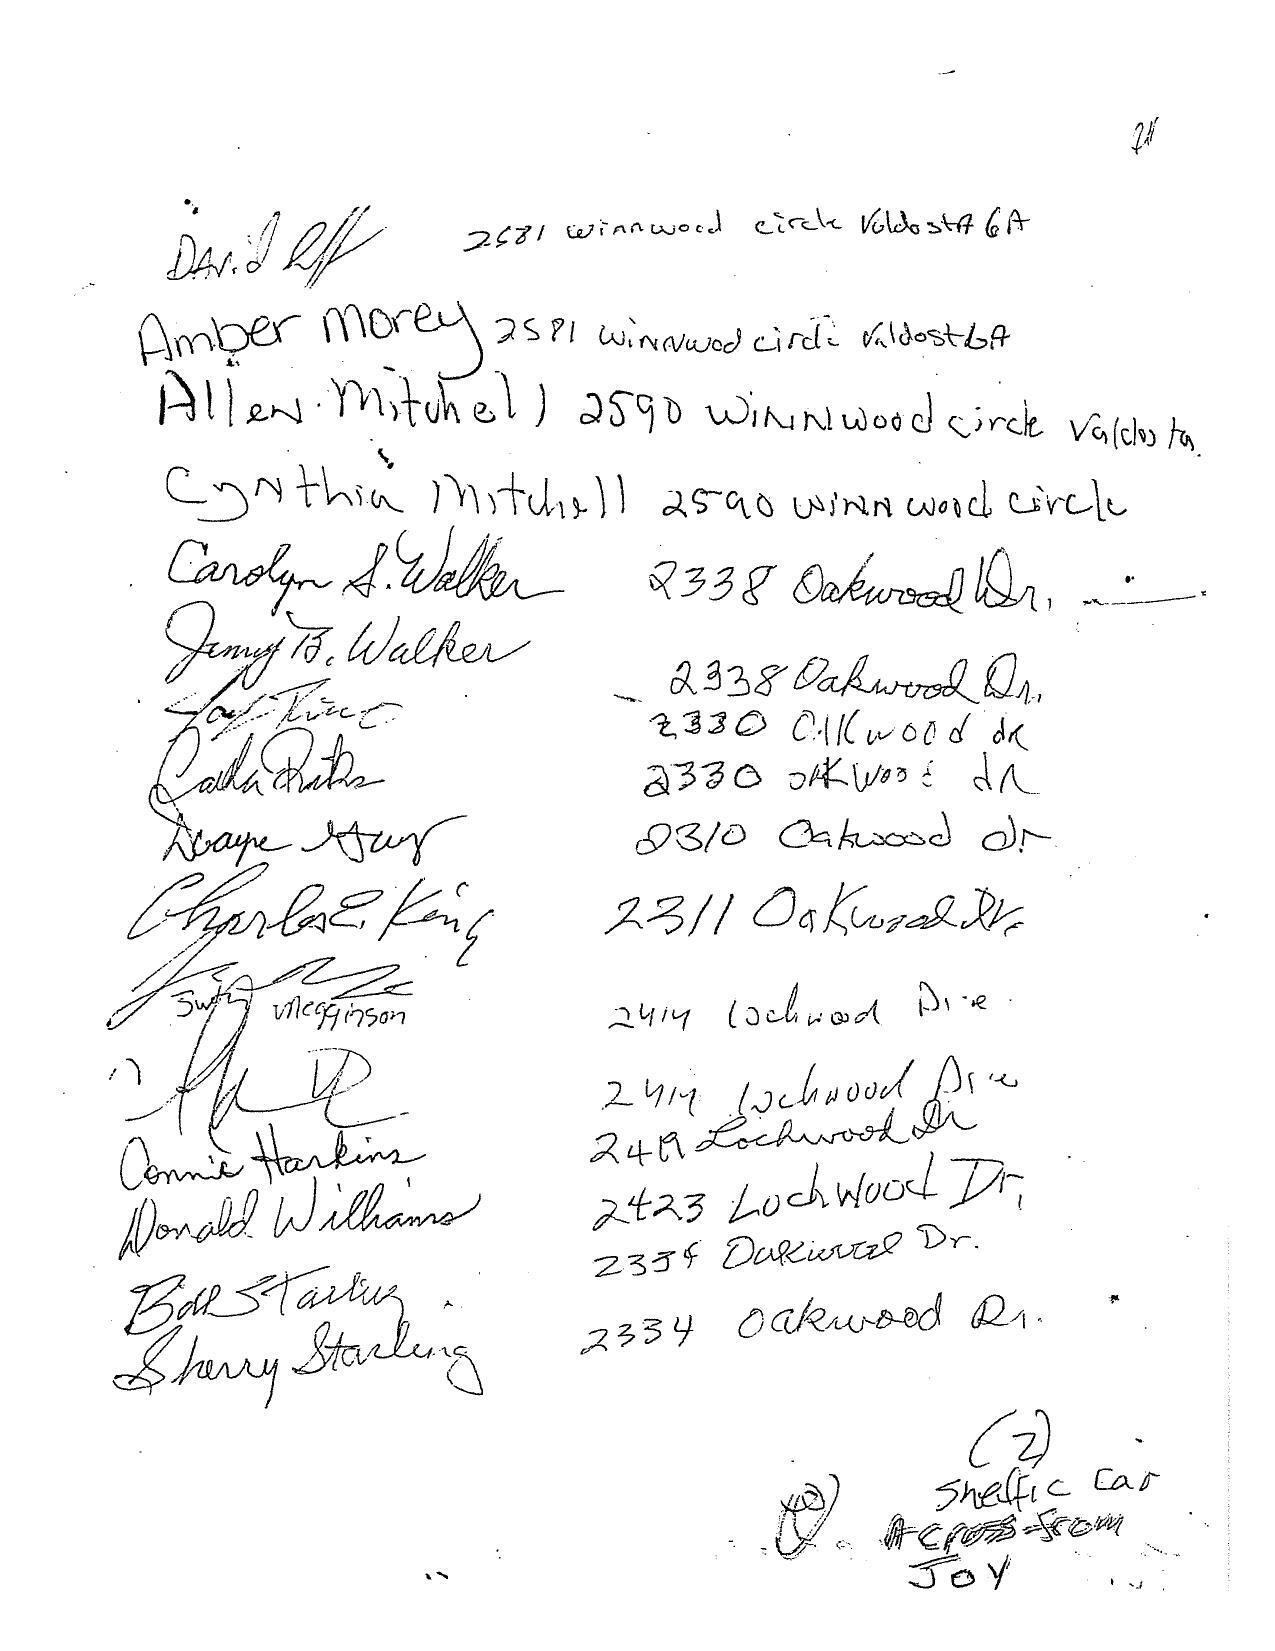 David 2581 Winnwood circle Valdosta GA
Amber Morey 2581 Winnwod circle Valdosta GA
Allen Mitchell 2590 Winnwood circle Valdosta
Cynthia Mitchell 2590 Winnwood circle
Carolyn S. Walker 2338 Oakwood Dr.
Jimmy B. Walker 2338 Oakwood Dr.
2330 Oakwood dr
2330 oakwood dr
Dwayne 2310 Oakwood dr
Charles E. King 2311 Oakwood Dr.
Megginson 2414 Lochwood Drive
2414 Lochwood Drive
Connie Harkins 2419 Lochwood Dr
Donald Williams 2423 LochWood Dr.
Bill Starling 2334 Oakwood Dr.
Sherry Starling 2334 Oakwood Dr.
(2)
car
Across from
JOY